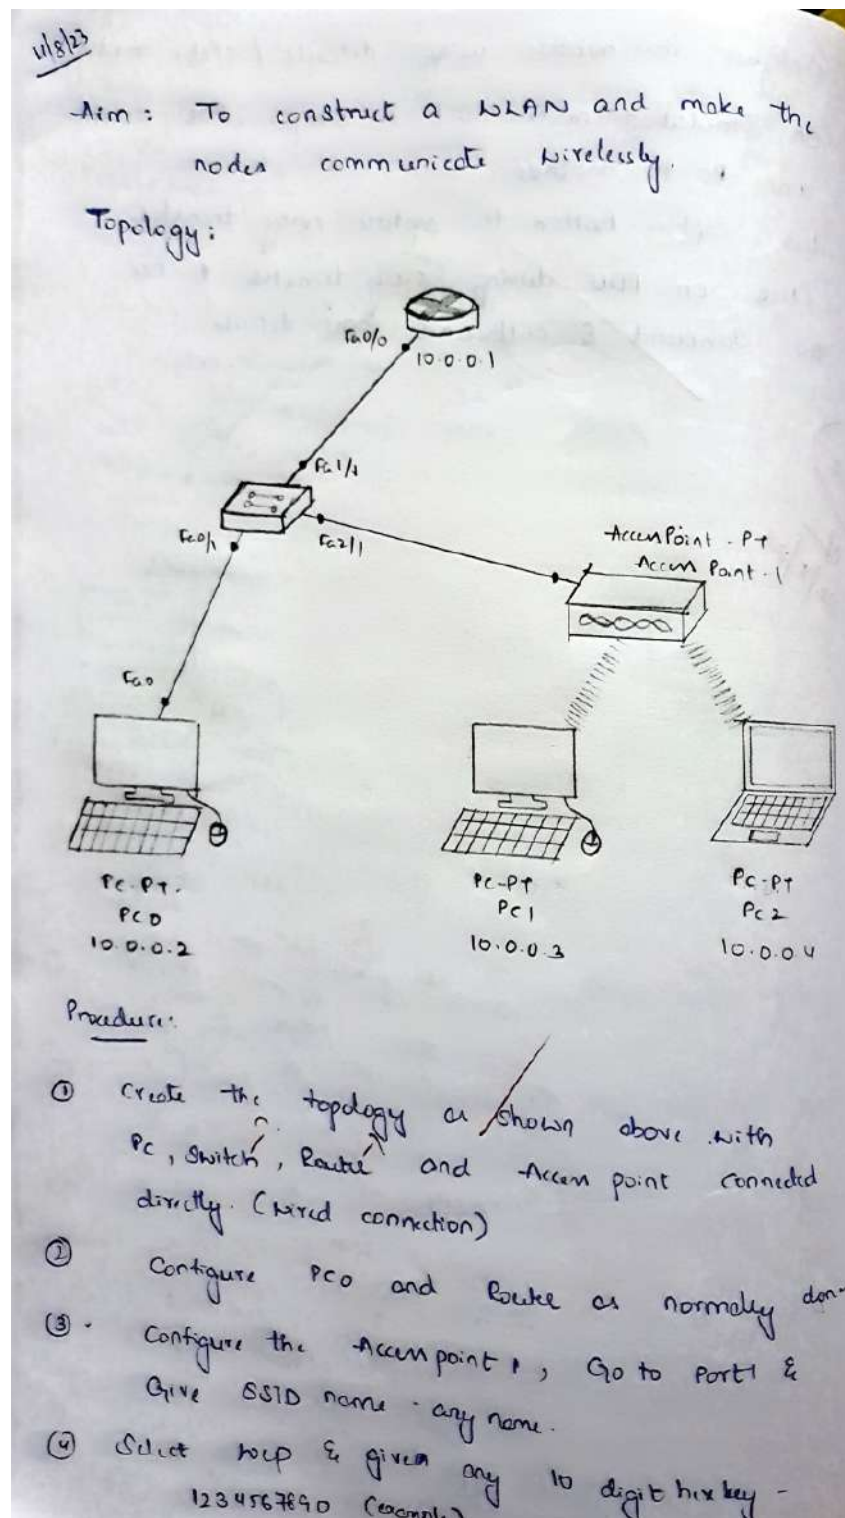 11/8/23
Aim: To construct a WLAN and make the
nodes communicate wirelessly.
Topology:
Fa0/0
10.0.0.1
Fa1/1
Fa0/1
Fa2/1
AccessPoint-PT
Access Point-1
Fa0
PC-PT
PC0
10.0.0.2
PC-PT
PC1
10.0.0.3
PC-PT
PC2
10.0.0.4
Procedure:
① Create the topology as shown above with
PC, Switch, Router and Access point connected
directly. (Wired connection)
② Configure PC0 and Router as normally
③ Configure the Accesspoint 1, Go to Port1 &
Give SSID name - any name.
④ Select wep & given any 10 digit hex key -
1234567890 (example)